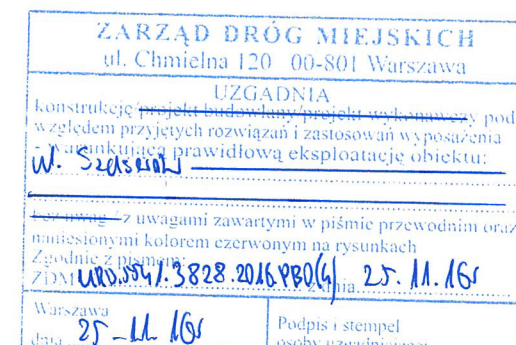 ZARZĄD DRÓG MIEJSKICH
ul. Chmielna 120 00-801 Warszawa
UZGADNIA
konstrukcję/projekt budowlany/projekt wykonawczy pod
względem przyjętych rozwiązań i zastosowań wyposażenia
warunkującą prawidłową eksploatację obiektu:
ul.
bez uwag / z uwagami zawartymi w piśmie przewodnim oraz
naniesionymi kolorem czerwonym na rysunkach
Zgodnie z pismem:
ZDM URO.5541.3828.2016.PBO(4) z dnia 25.11.16r
Warszawa
dnia 25-11-16r
Podpis i stempel
osoby uzgadniającej